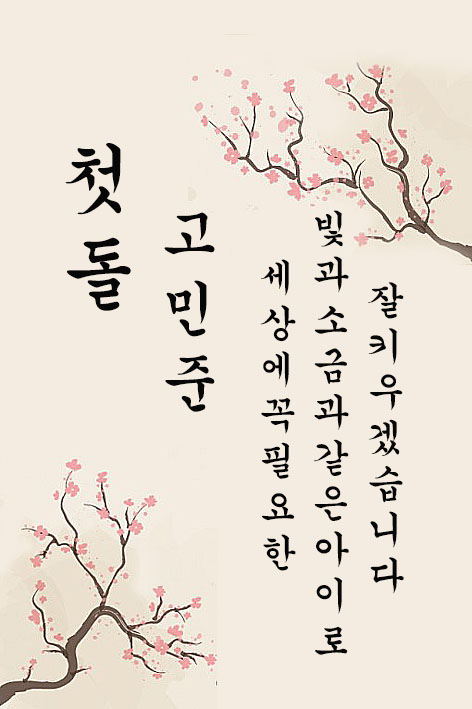 첫돌
고민준
세상에꼭필요한
빛과소금과같은아이로
잘키우겠습니다